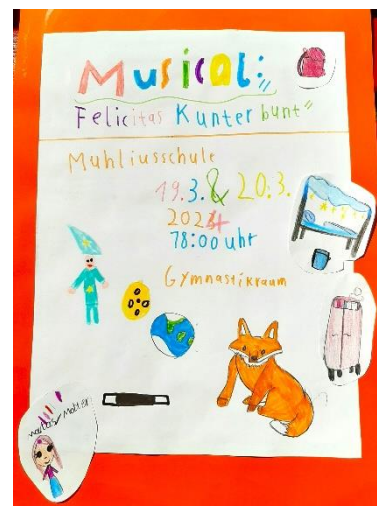 Musical:
„Felicitas Kunterbunt“
Muhliusschule
19.3. & 20.3.
2024
18:00 uhr
Gymnastikraum